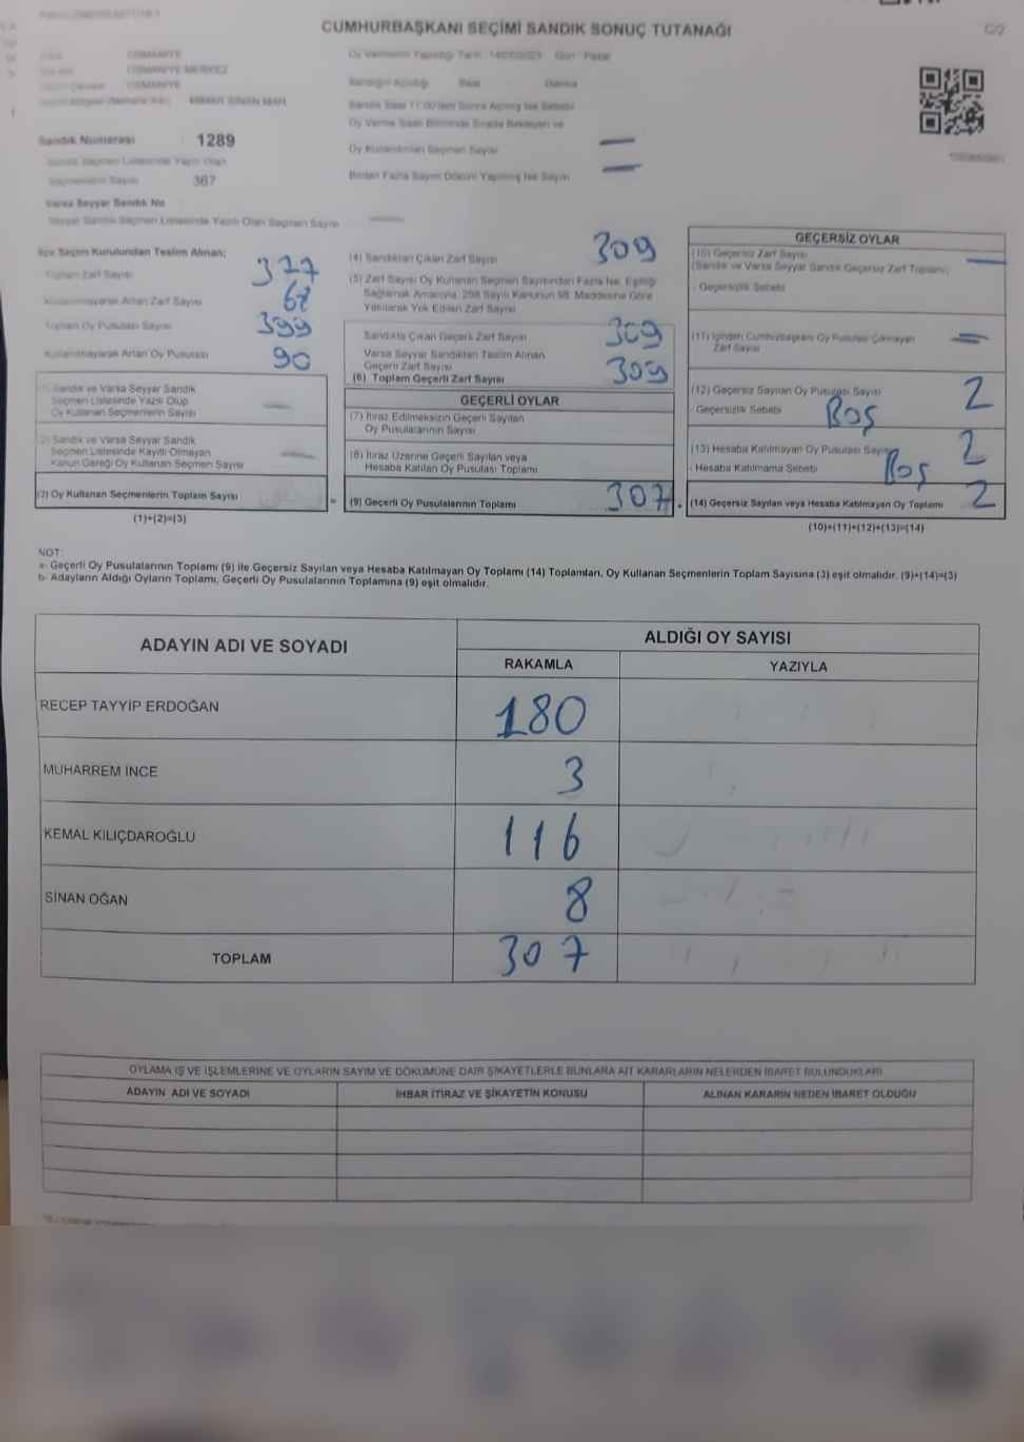 CUMHURBAŞKANI SEÇİMİ SANDIK SONUÇ TUTANAĞI
OSMANİYE
OSMANİYE MERKEZ
OSMANİYE
Sandık Numarası 1289
367
Varsa Seyyar Sandık No
Seyyar Sandık Seçmen Listesinde Yazılı Olan Seçmen Sayısı
Oy Kullandırılan Seçmen Sayısı
İlçe Seçim Kurulundan Teslim Alınan;
Toplam Zarf Sayısı 377
Kullanılmayarak Artan Zarf Sayısı 68
Toplam Oy Pusulası Sayısı 399
Kullanılmayarak Artan Oy Pusulası 90
(1) Sandık ve Varsa Seyyar Sandık
Seçmen Listesinde Yazılı Olup
Oy Kullanan Seçmenlerin Sayısı
(2) Sandık ve Varsa Seyyar Sandık
Seçmen Listesinde Kayıtlı Olmayan
Kanun Gereği Oy Kullanan Seçmen Sayısı
(3) Oy Kullanan Seçmenlerin Toplam Sayısı
(1)+(2)=(3)
(4) Sandıktan Çıkan Zarf Sayısı 309
(5) Zarf Sayısı Oy Kullanan Seçmen Sayısından Fazla İse, Eşitliği
Sağlamak Amacıyla, 298 Sayılı Kanunun 98. Maddesine Göre
Yakılarak Yok Edilen Zarf Sayısı
Sandıkta Çıkan Geçerli Zarf Sayısı 309
Varsa Seyyar Sandıktan Teslim Alınan
Geçerli Zarf Sayısı
(6) Toplam Geçerli Zarf Sayısı 309
GEÇERLİ OYLAR
(7) İtiraz Edilmeksizin Geçerli Sayılan
Oy Pusulalarının Sayısı
(8) İtiraz Üzerine Geçerli Sayılan veya
Hesaba Katılan Oy Pusulası Toplamı
(9) Geçerli Oy Pusulalarının Toplamı 307
GEÇERSİZ OYLAR
(10) Geçersiz Zarf Sayısı
(Sandık ve Varsa Seyyar Sandık Geçersiz Zarf Toplamı)
- Geçersizlik Sebebi
(11) İçinden Cumhurbaşkanı Oy Pusulası Çıkmayan
Zarf Sayısı
(12) Geçersiz Sayılan Oy Pusulası Sayısı 2
- Geçersizlik Sebebi Boş
(13) Hesaba Katılmayan Oy Pusulası Sayısı 2
- Hesaba Katılmama Sebebi Boş
(14) Geçersiz Sayılan veya Hesaba Katılmayan Oy Toplamı 2
(10)+(11)+(12)+(13)=(14)
NOT:
a- Geçerli Oy Pusulalarının Toplamı (9) ile Geçersiz Sayılan veya Hesaba Katılmayan Oy Toplamı (14) Toplamları, Oy Kullanan Seçmenlerin Toplam Sayısına (3) eşit olmalıdır. (9)+(14)=(3)
b- Adayların Aldığı Oyların Toplamı, Geçerli Oy Pusulalarının Toplamına (9) eşit olmalıdır.
ADAYIN ADI VE SOYADI ALDIĞI OY SAYISI
RAKAMLA YAZIYLA
RECEP TAYYİP ERDOĞAN 180
MUHARREM İNCE 3
KEMAL KILIÇDAROĞLU 116
SİNAN OĞAN 8
TOPLAM 307
OYLAMA İŞ VE İŞLEMLERİNE VE OYLARIN SAYIM VE DÖKÜMÜNE DAİR ŞİKAYETLERLE BUNLARA AİT KARARLARIN NELERDEN İBARET BULUNDUKLARI
ADAYIN ADI VE SOYADI İHBAR İTİRAZ VE ŞİKAYETİN KONUSU ALINAN KARARIN NEDEN İBARET OLDUĞU